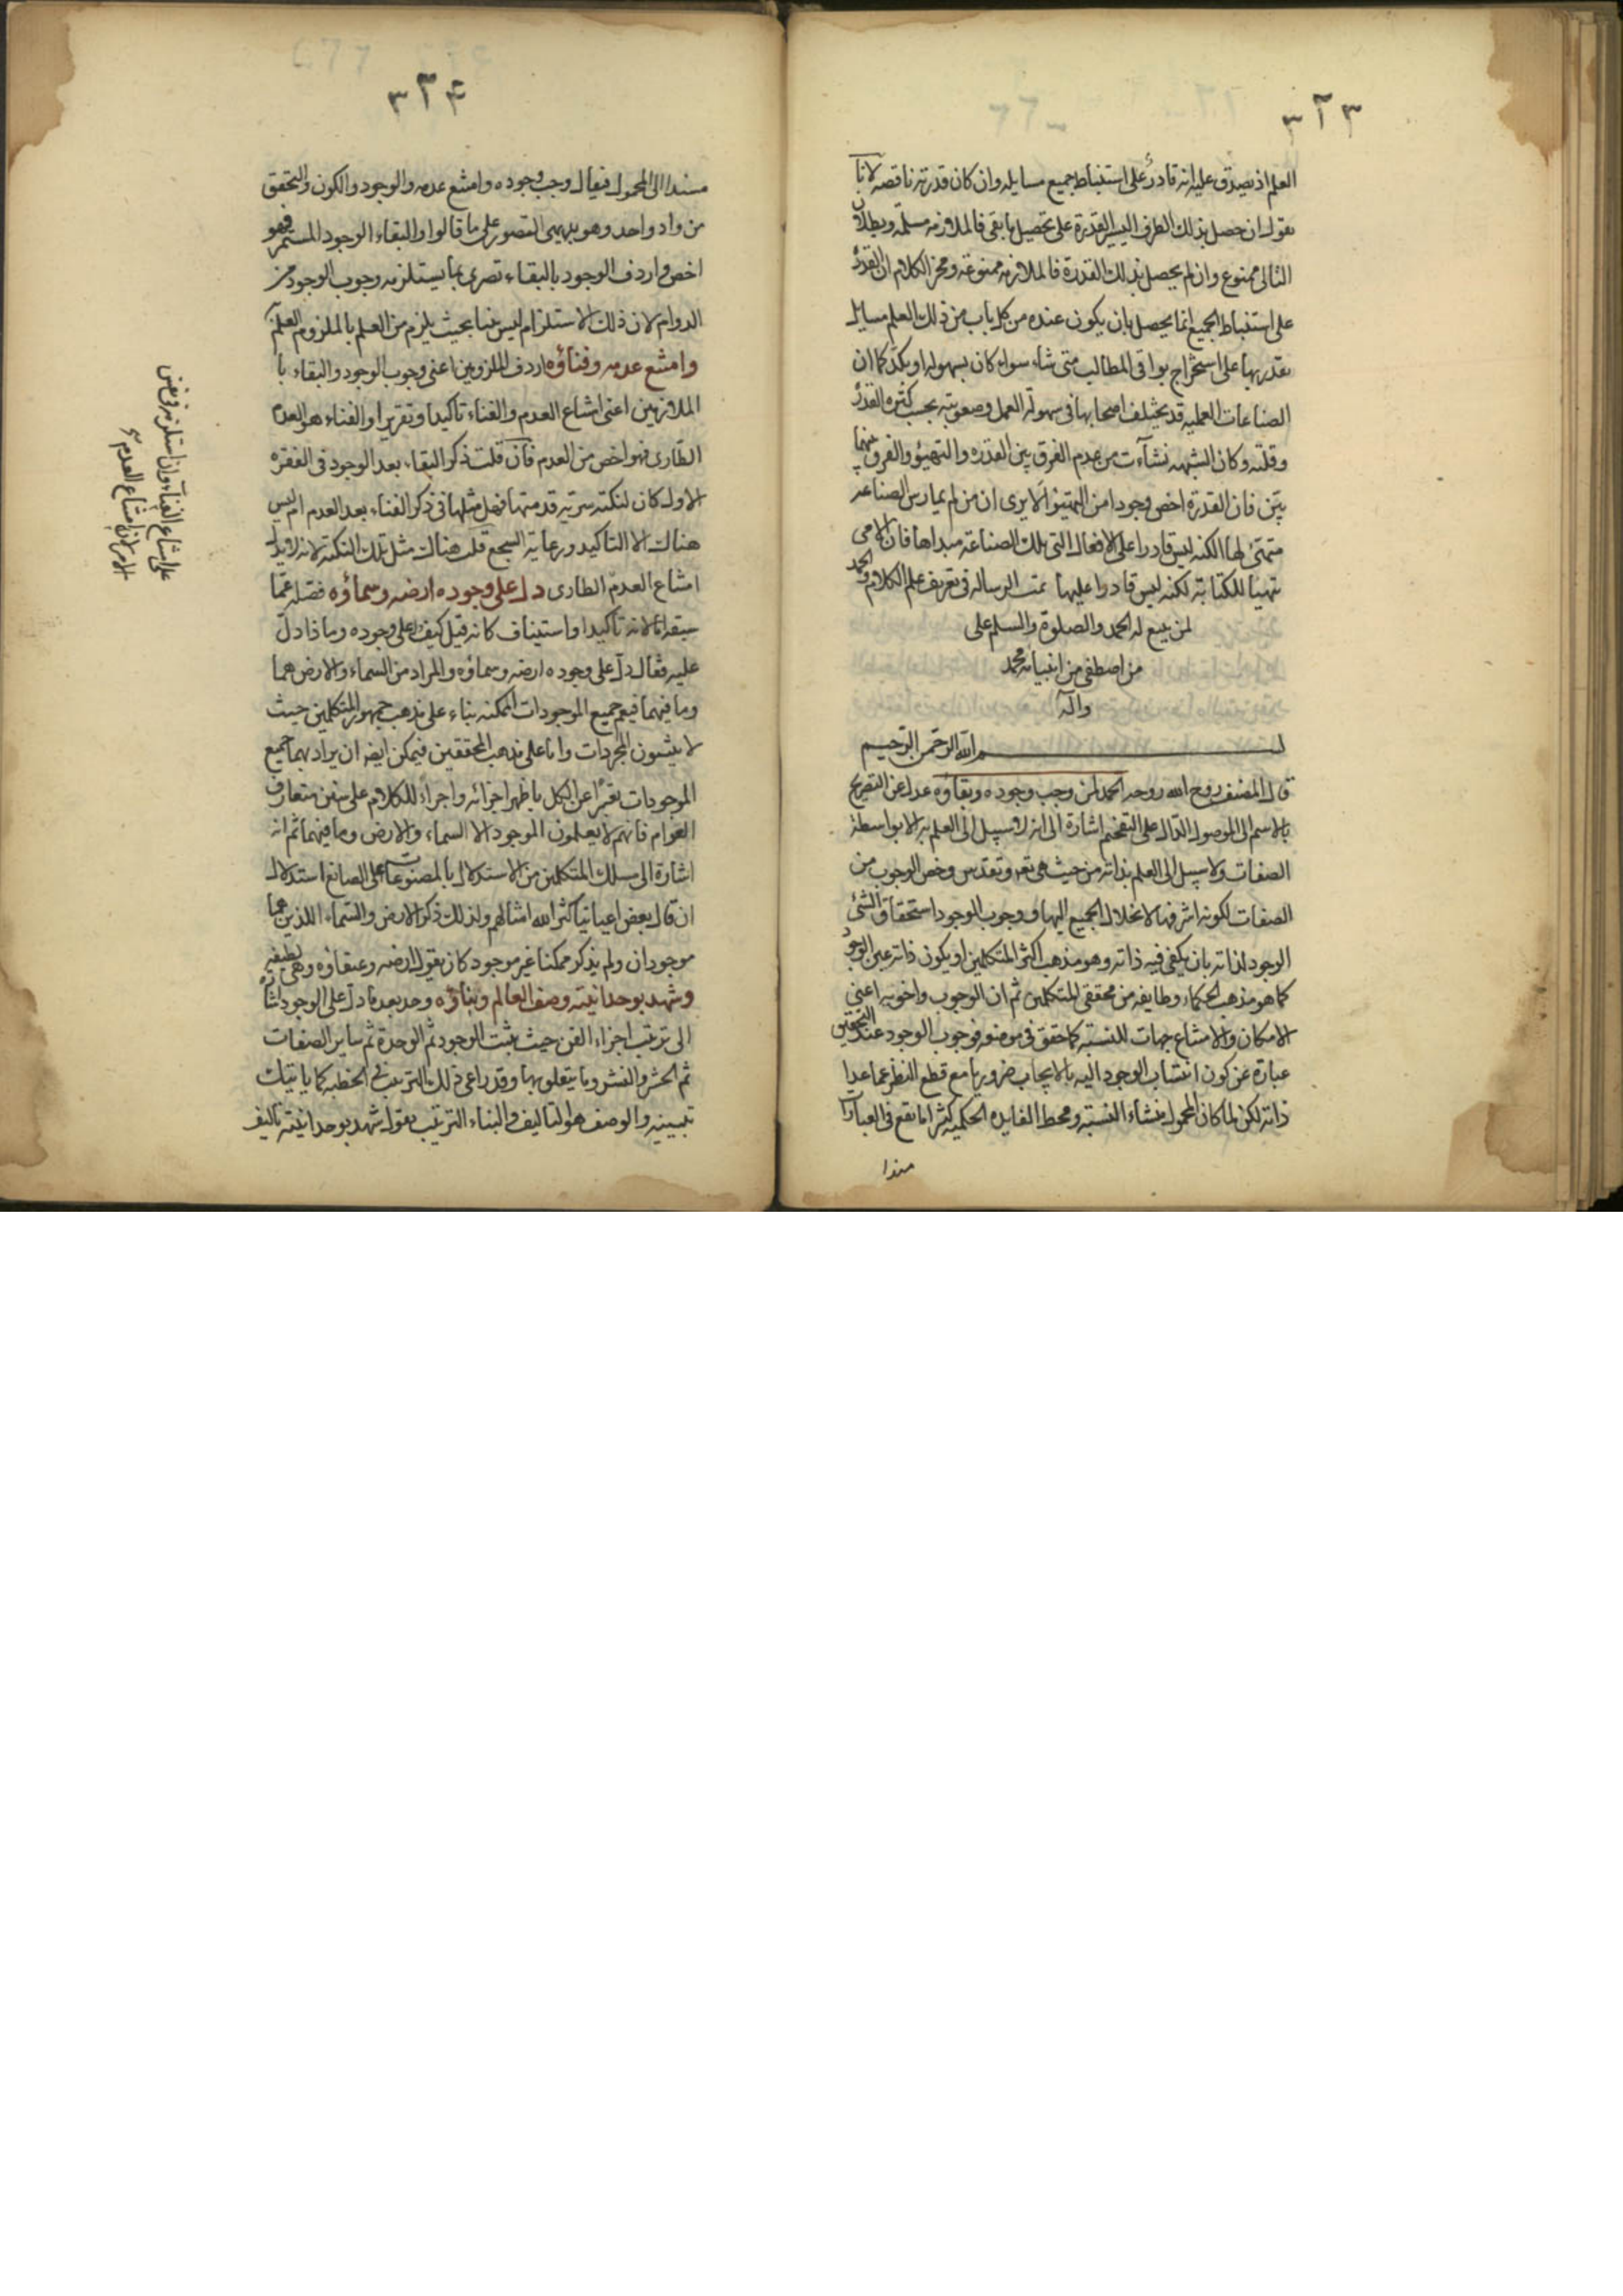 ٣٢٣
العلم اذ يصدق عليه انه قادر على استنباط جميع مسايله وان كان قدرته ناقصه لانا
نقول ان حصل بذلك الطرف اليسير القدرة على تحصيل ما بقى فالملازمه مسلمه وبطلان
التالى ممنوع وان لم يحصل بذلك القدرة فالملازمه ممنوعة ومخر الكلام ان القدرة
على استنباط الجميع انما يحصل بان يكون عنده من كل باب من ذلك العلم مسايل
يقدر بها على استخراج بواقى المطالب متى شاء سواء كان بسهولة او بكد كما ان
الصناعات العمليه قد يختلف اصحابها فى سهولة العمل وصعوبته بحسب كثرة القدرة
وقلته وكان الشبهه نشأت من عدم الفرق بين القدره والتهيؤ والفرق بينهما
بين فان القدرة اخص وجودا من التهيؤ الا يرى ان من لم يمارس الصناعه
متهيئ لها لكنه ليس قادرا على الافعال التى تلك الصناعة مبداها فان الامى
تهيئا للكتابة لكنه ليس قادرا عليها تمت الرساله فى تعريف علم الكلام والحمد
لمن يبيع له الحمد والصلوة والسلم على
من اصطفى من انبيائه محمد
وآله
بسم الله الرحمن الرحيم
قال المصنف روح الله روحه الحمد لمن وجب وجوده وبقاؤه عدل عن التصريح
بالاسم الى الموصول الدال على التفخيم اشارة الى انه لا سبيل الى العلم به الا بواسطة
الصفات ولا سبيل الى العلم بذاته من حيث هى تعه وتقدس وخص الوجوب من
الصفات لكونه اشرفها لانخلال الجميع اليها ووجوب الوجود استحقاق الشئ
الوجود لذاته بان يكفى فيه ذاته وهو مذهب اكثر المتكلمين او يكون ذاته عين الوجود
كما هو مذهب الحكماء وطايفه من محققى المتكلمين ثم ان الوجوب واخويه اعنى
الامكان والامتناع جهات للنسبه كما حقق فى موضعه فوجوب الوجود عند التحقيق
عبارة عن كون انتساب الوجود اليه بالايجاب ضروريا مع قطع النظر عما عدا
ذاته لكن لما كان المحمول منشاء النسبه ومحط الفايده الحكميه كثيرا ما يقع فى العبارة
مسندا
٣٢۴
مسندا الى المحمول فيقال وجب وجوده وامتنع عدمه والوجود والكون والتحقق
من واد واحد وهو بديهى التصور على ما قالوا والبقاء الوجود المستمر فهو
اخص واردف الوجود بالبقاء تصريحا بما يستلزمه وجوب الوجود من
الدوام لان ذلك الاستلزام ليس بينا بحيث يلزم من العلم بالملزوم العلم
وامتنع عدمه وفناؤه اردف الملزومين اعنى وجوب الوجود والبقاء با
الملازمين اعنى امتناع العدم والفناء تاكيدا وتقريرا والفناء هو العدم
الطارى فهو اخص من العدم فان قلت ذكر البقاء بعد الوجود فى الفقره
الاولى كان لنكته سرية قدمتها فهل مثلها فى ذكر الفناء بعد العدم ام ليس
هناك الا التاكيد ورعاية السجع قلت هناك مثل تلك النكته لانه لا يدل
امتناع العدم الطارى دل على وجوده ارضه وسماؤه فصله عما
سبقه اما لانه تاكيدا واستيناف كانه قيل كيف وعلى وجوده وماذا دل
عليه فقال دل على وجوده ارضه وسماؤه والمراد من السماء والارض هما
وما فيهما فيعم جميع الموجودات الممكنه بناء على مذهب جمهور المتكلمين حيث
لا يثبتون المجردات واما على مذهب المحققين فيمكن ايضه ان يراد بهما جميع
الموجودات تعبيرا عن الكل باظهر اجزائه واجراء للكلام على سنن متعارف
العوام فانهم لا يعلمون الموجود الا السماء والارض وما فيهما ثم انه
اشارة الى مسلك المتكلمين من الاستدلال بالمصنوعات على الصانع استدلال
ان قال بعض اعياننا كثر الله امثالهم ولذلك ذكر الارض والسماء اللذين هما
موجودان ولم يذكر ممكنا غير موجود كان يقول ارضه وعنقاؤه وهى لطيفه
وشهد بوحدانيته وصف العالم وبناؤه وحد بعد ما دل على الوجود اشارة
الى ترتيب اجزاء الفن حيث يثبت الوجود ثم الوحدة ثم ساير الصفات
ثم الحشر والنشر وما يتعلق بها وقد راعى ذلك الترتيب فى الخطبه كما ياتيك
تبيينه والوصف هو التاليف والبناء الترتيب بقوله شهد بوحدانيته تاليف
على امتناع الفناء وان استلزمه فى نفس
الامر لان امتناع العدم